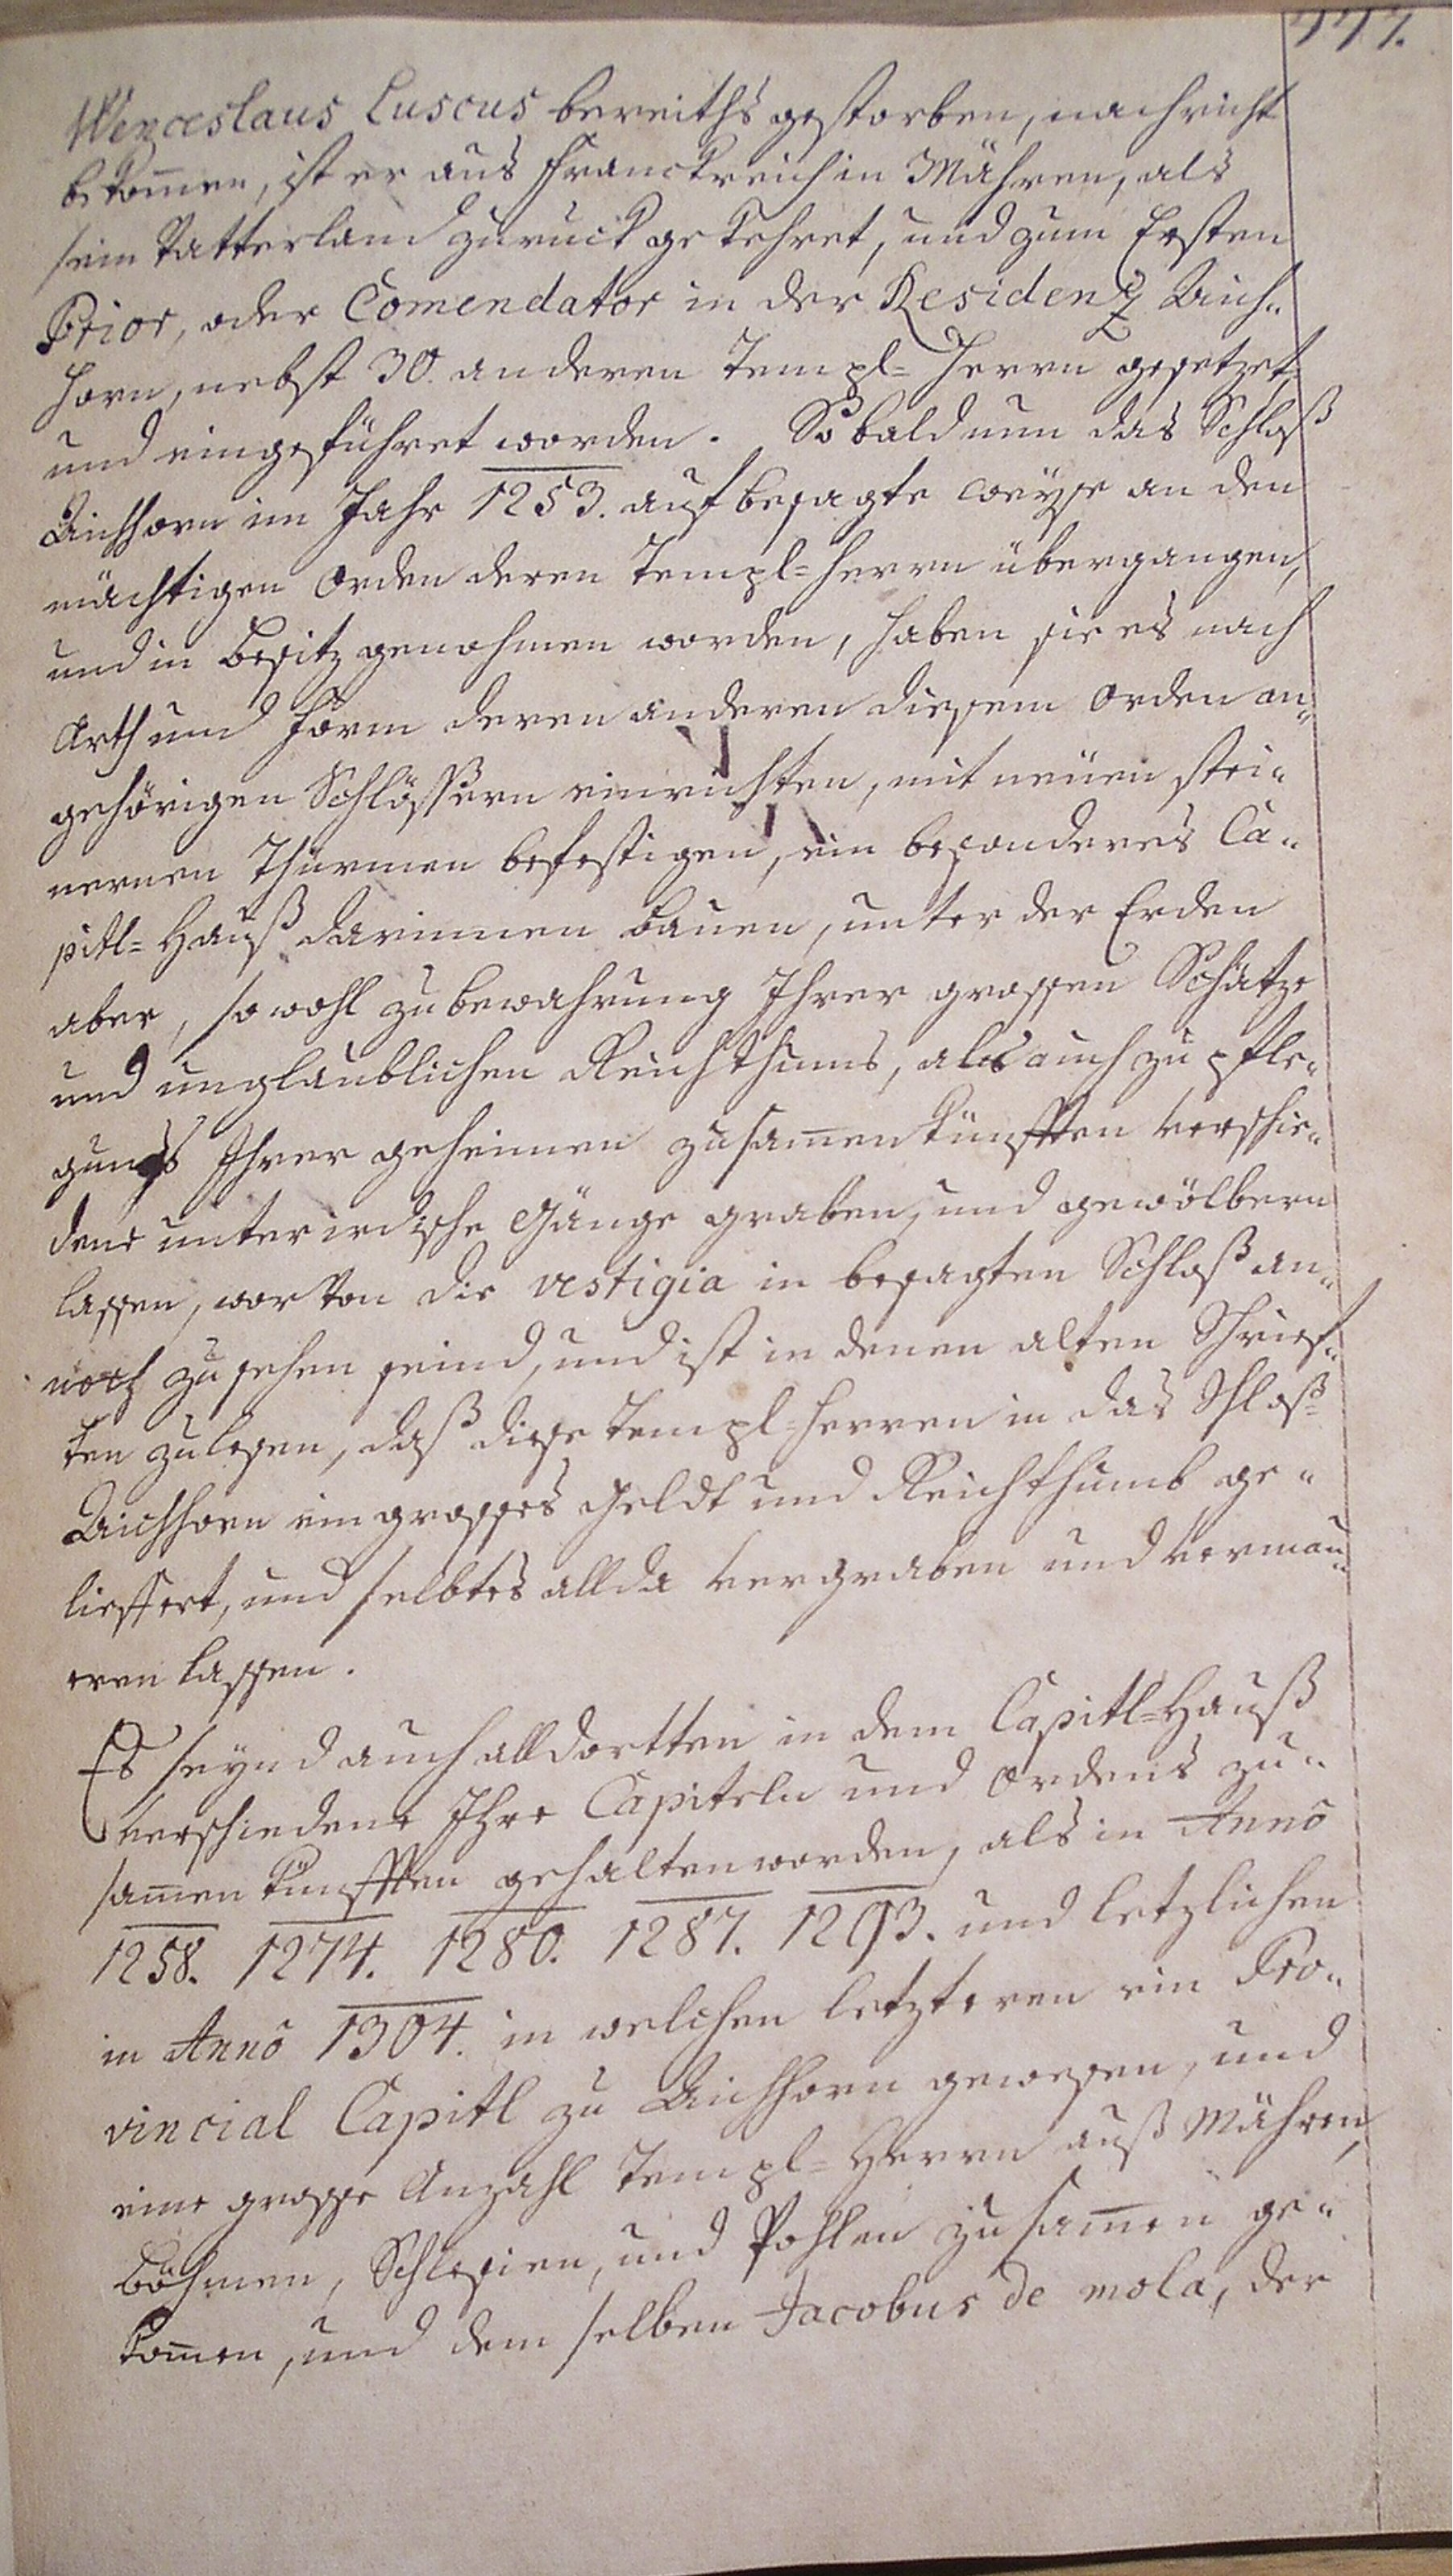 777.
Wenceslaus Luscus bereiths gestorben, nachricht
bekom̅en, ist er aus Franckreich in Mähren, als
sein Vatterland zuruck gekehret, und zum Ersten
Prior, oder Comendator in der Residenz Aich„
horn, nebst 30. anderen Templ= Herrn gesetzet,
und eingeführet worden. So bald nun das Schloß
Aichhorn im Jahr 1253. auf besagte weyse an den
mächtigen Orden deren Templ=Herrn übergangen,
und in besitz genohmen worden, haben sie es nach
Arth und Form deren anderen diesem Orden an„
gehörigen Schlössern einrichten, mit neuen stei„
nernen Thürmen befestigen, ein besonderes Ca„
pitl= Hauß darinnen bauen, unter der Erden
aber, so wohl zu bewahrung Ihrer grossen Schätze
und unglaublichen Reichthums, als auch zu pfle„
gung Ihrer geheimen zusam̅enkünfften verschie„
dene unterirdische Gänge graben, und gewölbern
lassen, wor von die vestigia in besagten Schloß an„
noch zu sehen seind, und ist in denen alten Schrief„
ten zu lesen, daß diese Templ=Herren in das Schloß
Aichhorn ein grosses Geldt und Reichthumb ge„
lieffert, und selbtes allda vergraben und vermau„
eren lassen.
Es seynd auch alldortten in dem Capitl=Hauß
verschiedene Ihre Capiteln und Ordens zu„
sam̅enkünfften gehalten worden, als in Anno
1258. 1274. 1280. 1287. 1293. und letzlichen
in Anno 1304. in welchen letzteren ein Pro„
vincial Capitl zu Aichhorn gewesen, und
eine grosse Anzahl Templ= Herrn auß Mähren,
Böhmen, Schlesien, und Pohlen zusam̅en ge„
kom̅en, und dem selben Jacobus de mola, der